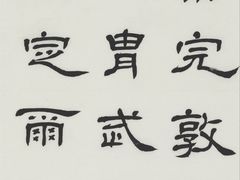 完敦
胄武
定爾